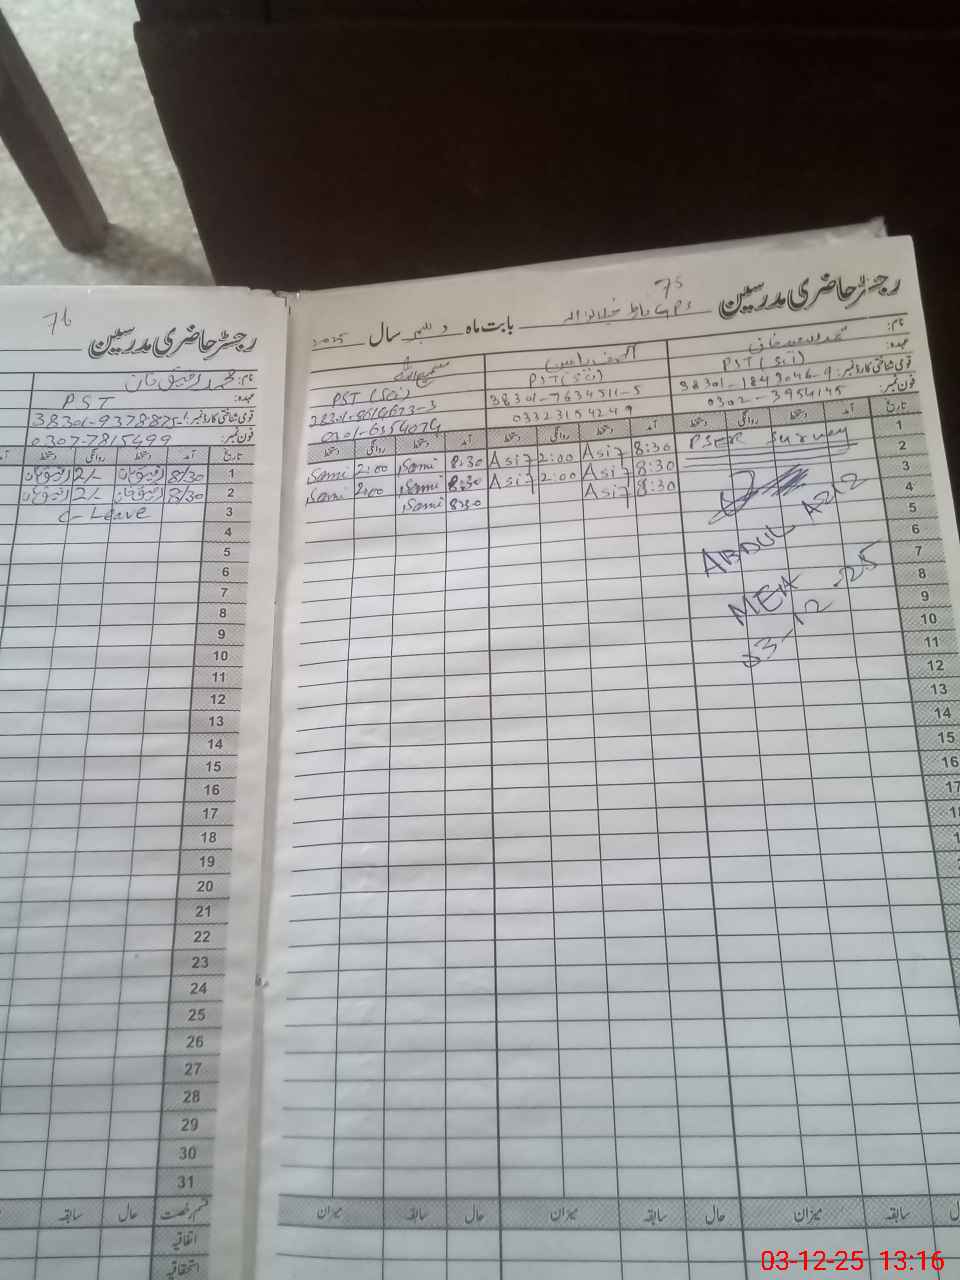 75
رجسٹر حاضری مدرسین
بابت ماہ دسمبر سال 2025
نام:
عہدہ:
قومی شناختی کارڈ نمبر:
فون نمبر:
PST (Sci)
38301-1849046-9
0302-3954145
PST (Sci)
38301-7634511-5
03323154249
PST (Sci)
0301-6354074
تاریخ آمد دستخط روانگی دستخط آمد دستخط روانگی دستخط آمد دستخط روانگی دستخط
1 PSER Survey 8:30 Asif 2:00 Asif 8:30 Sami 2:00 Sami
2 8:30 Asif 2:00 Asif 8:30 Sami 2:00 Sami
3 8:30 Asif 8:30 Sami
4
5
6
7
8
9
10
11
12
13
14
15
16
17
ABDUL AZIZ
MEA
03-12-25
سابقہ میزان حال سابقہ میزان حال سابقہ میزان
76
رجسٹر حاضری مدرسین
نام: محمد رفیق خان
عہدہ: PST
قومی شناختی کارڈ نمبر: 38301-9378875-1
فون نمبر: 0307-7815499
تاریخ آمد دستخط روانگی دستخط
1 8/30 2/-
2 8/30 2/-
3 C-Leave
4
5
6
7
8
9
10
11
12
13
14
15
16
17
18
19
20
21
22
23
24
25
26
27
28
29
30
31
قسم رخصت حال سابقہ
اتفاقیہ
استحقاقیہ
03-12-25 13:16